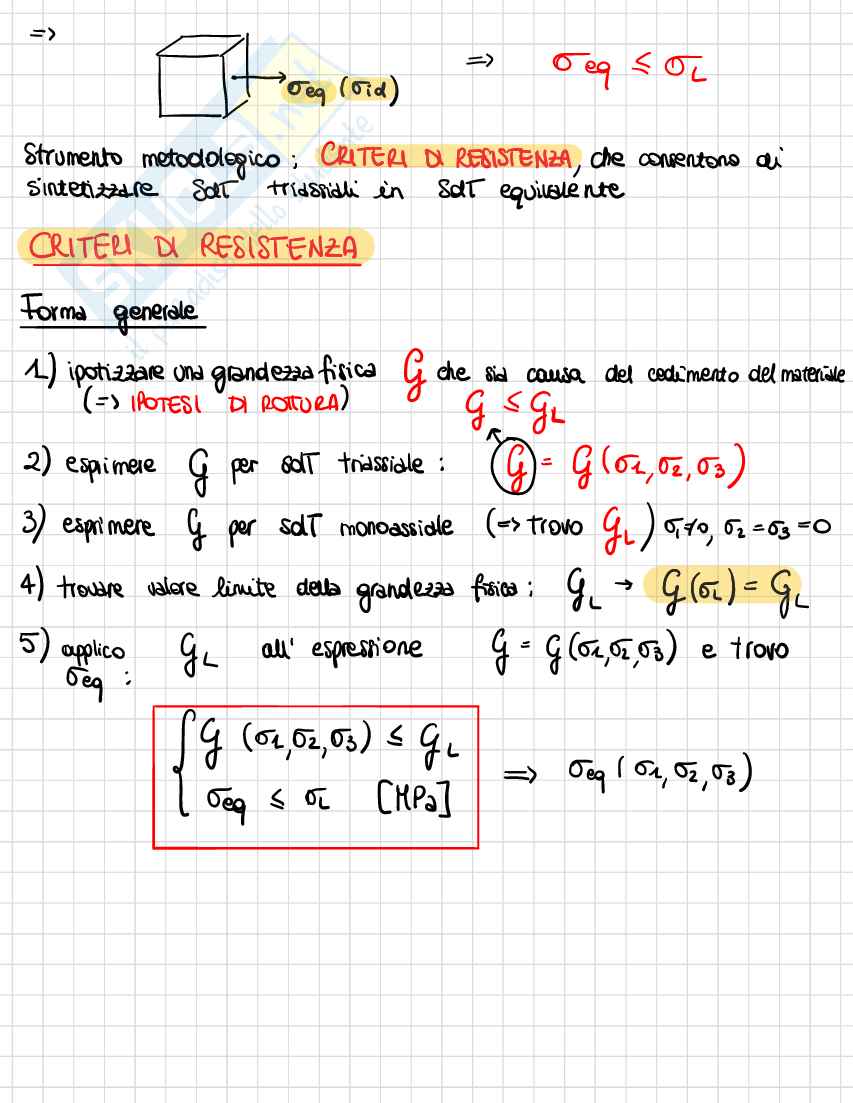 =>
σeq (σid)
=> σeq ≤ σL
Strumento metodologico: CRITERI DI RESISTENZA, che consentono di
sintetizzare SdT triassiali in SdT equivalente
CRITERI DI RESISTENZA
Forma generale
1) ipotizzare una grandezza fisica G che sia causa del cedimento del materiale
(=> IPOTESI DI ROTTURA) G ≤ GL
2) esprimere G per sdT triassiale : G = G(σ1, σ2, σ3)
3) esprimere G per sdT monoassiale (=> trovo GL) σ1≠0, σ2 = σ3 = 0
4) trovare valore limite della grandezza fisica: GL → G(σL) = GL
5) applico GL all' espressione G = G(σ1, σ2, σ3) e trovo
σeq :
{ G (σ1, σ2, σ3) ≤ GL
σeq ≤ σL [MPa]
=> σeq (σ1, σ2, σ3)